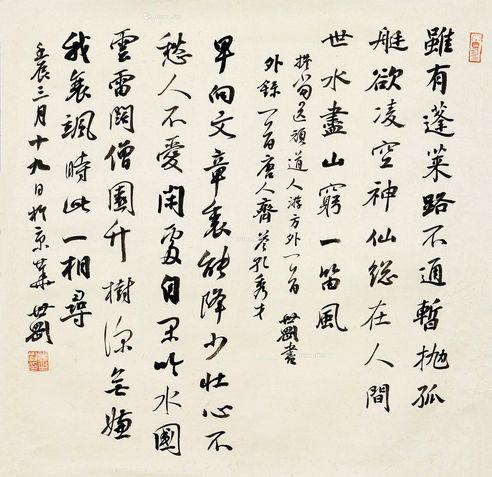 雖有蓬萊路不通暫拋孤
艇欲凌空神仙總在人間
世水盡山窮一笛風
頑道人游方外一首
外錄一首唐人齊答孔秀才
世劉書
早向文章裏能降少壯心不
愁人不愛閑處自閑吟水國
雲雷闊僧園竹樹深無嫌
我衰颯時此一相尋
壬辰三月十九日於京華世劉